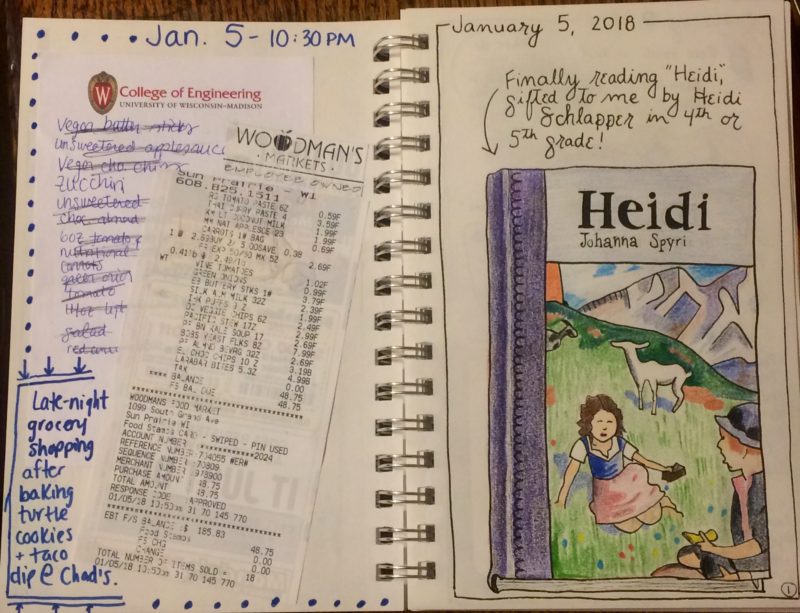 Jan. 5 - 10:30 PM
W College of Engineering
UNIVERSITY OF WISCONSIN-MADISON
Vegan butter sticks
unsweetened applesauce
Vegan cho chips
zucchini
unsweetened
choc almond
6oz tomato
nutritional
carrots
green onion
tomato
14oz lift
salad
WOODMAN'S
• MARKETS •
EMPLOYEE OWNED
Sun Prairie - WI
608.825.1511
TOMATO PASTE 6Z 0.59F
THAI CURRY PASTE 4 3.59F
LT COCONUT MILK 1.99F
NAT APPLESCE 23 1.99F
CARROTS 1# BAG 0.69F
1 @ 2.69BUY 2/ 5.00SAVE 0.38
50/50 MX 5Z 2.69F
WT 0.41 lb @ 2.49/lb
VINE TOMATOES 1.02F
GREEN ONIONS 0.99F
EB BUTTERY STKS 1# 3.79F
SILK A.M MILK 32Z 2.39F
PUFFS 2.49F
VEGGIE CHIPS 6Z 1.99F
STEW 17Z 2.99F
BN KALE SOUP 17 2.69F
BOBS YEAST FLKS 8Z 7.99F
ALMOND BEVRG 32Z 2.69F
EL CHOC CHIPS 10 Z 3.19B
LARABAR BITES 5.3Z 4.99B
TAX 0.00
**** BALANCE 48.75
FS BAL DUE 48.75
WOODMANS FOOD MARKET
1099 South Grand Ave
Sun Prairie WI
Food Stamps CARD - SWIPED - PIN USED
ACCOUNT NUMBER ************2024
REFERENCE NUMBER 704055 #ER#
SEQUENCE NUMBER 703809
MERCHANT NUMBER 8973900
PURCHASE AMOUNT 48.75
TOTAL AMOUNT 48.75
RESPONSE CODE APPROVED
01/05/18 10:50pm 31 70 145 770
EBT F/S BALANCE $ 185.83
Food Stamps 48.75
FS CHG 0.00
CHANGE 0.00
TOTAL NUMBER OF ITEMS SOLD = 18
01/05/18 10:50pm 31 70 145 770
Late-night
grocery
shopping
after
baking
turtle
cookies
+ taco
dip @ Chad's.
January 5, 2018
Finally reading "Heidi,"
gifted to me by Heidi
Schlapper in 4th or
5th grade!
Heidi
Johanna Spyri
1